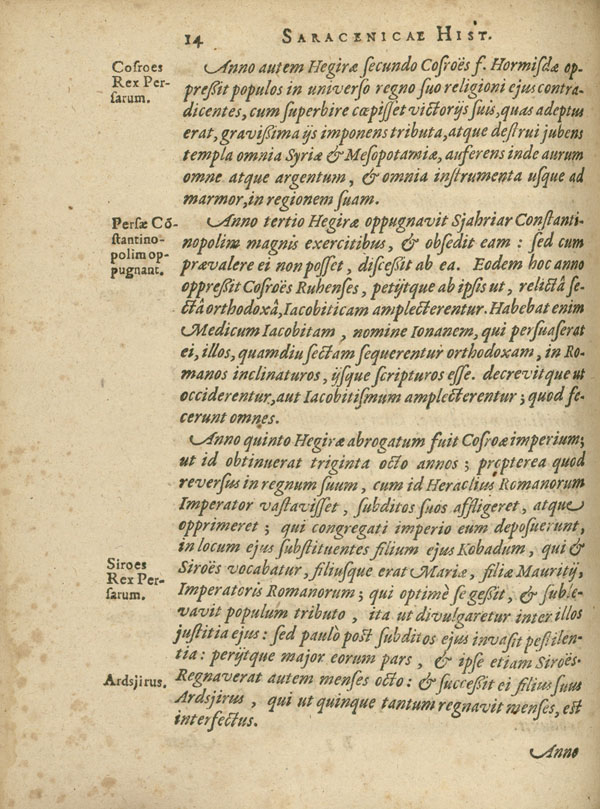 14 SARACENICAE HIST.
Cosroes
Rex Per-
sarum.
Anno autem Hegiræ secundo Cosroës f. Hormisdæ op-
preßit populos in universo regno suo religioni ejus contra-
dicentes, cum superbire cœpisset victorijs suis, quas adeptus
erat, gravißima ijs imponens tributa, atque destrui jubens
templa omnia Syriæ & Mesopotamiæ, auferens inde aurum
omne atque argentum, & omnia instrumenta usque ad
marmor, in regionem suam.
Persæ Cõ-
stantino-
polim op-
pugnant.
Anno tertio Hegiræ oppugnavit Sjahriar Constanti-
nopolim magnis exercitibus, & obsedit eam : sed cum
prævalere ei non posset, disceßit ab ea. Eodem hoc anno
oppreßit Cosroës Ruhenses, petijtque ab ipsis ut, relictâ se-
ctâ orthodoxâ, Iacobiticam amplecterentur. Habebat enim
Medicum Iacobitam, nomine Ionanem, qui persuaserat
ei, illos, quamdiu sectam sequerentur orthodoxam, in Ro-
manos inclinaturos, ijsque scripturos esse. decrevitque ut
occiderentur, aut Iacobitismum amplecterentur ; quod fe-
cerunt omnes.
Anno quinto Hegiræ abrogatum fuit Cosroæ imperium;
ut id obtinuerat triginta octo annos ; propterea quod
reversus in regnum suum, cum id Heraclius Romanorum
Imperator vastavisset, subditos suos affligeret, atque
opprimeret ; qui congregati imperio eum deposuerunt,
in locum ejus substituentes filium ejus Kobadum, qui &
Siroes
Rex Per-
sarum.
Siroës vocabatur, filiusque erat Mariæ, filiæ Mauritij,
Imperatoris Romanorum ; qui optimè se geßit, & suble-
vavit populum tributo, ita ut divulgaretur inter illos
justitia ejus : sed paulò post subditos ejus invasit pestilen-
tia : perijtque major eorum pars, & ipse etiam Siroës.
Ardsjirus.
Regnaverat autem menses octo : & succeßit ei filius suus
Ardsjirus, qui ut quinque tantum regnavit menses, est
interfectus.
Anno